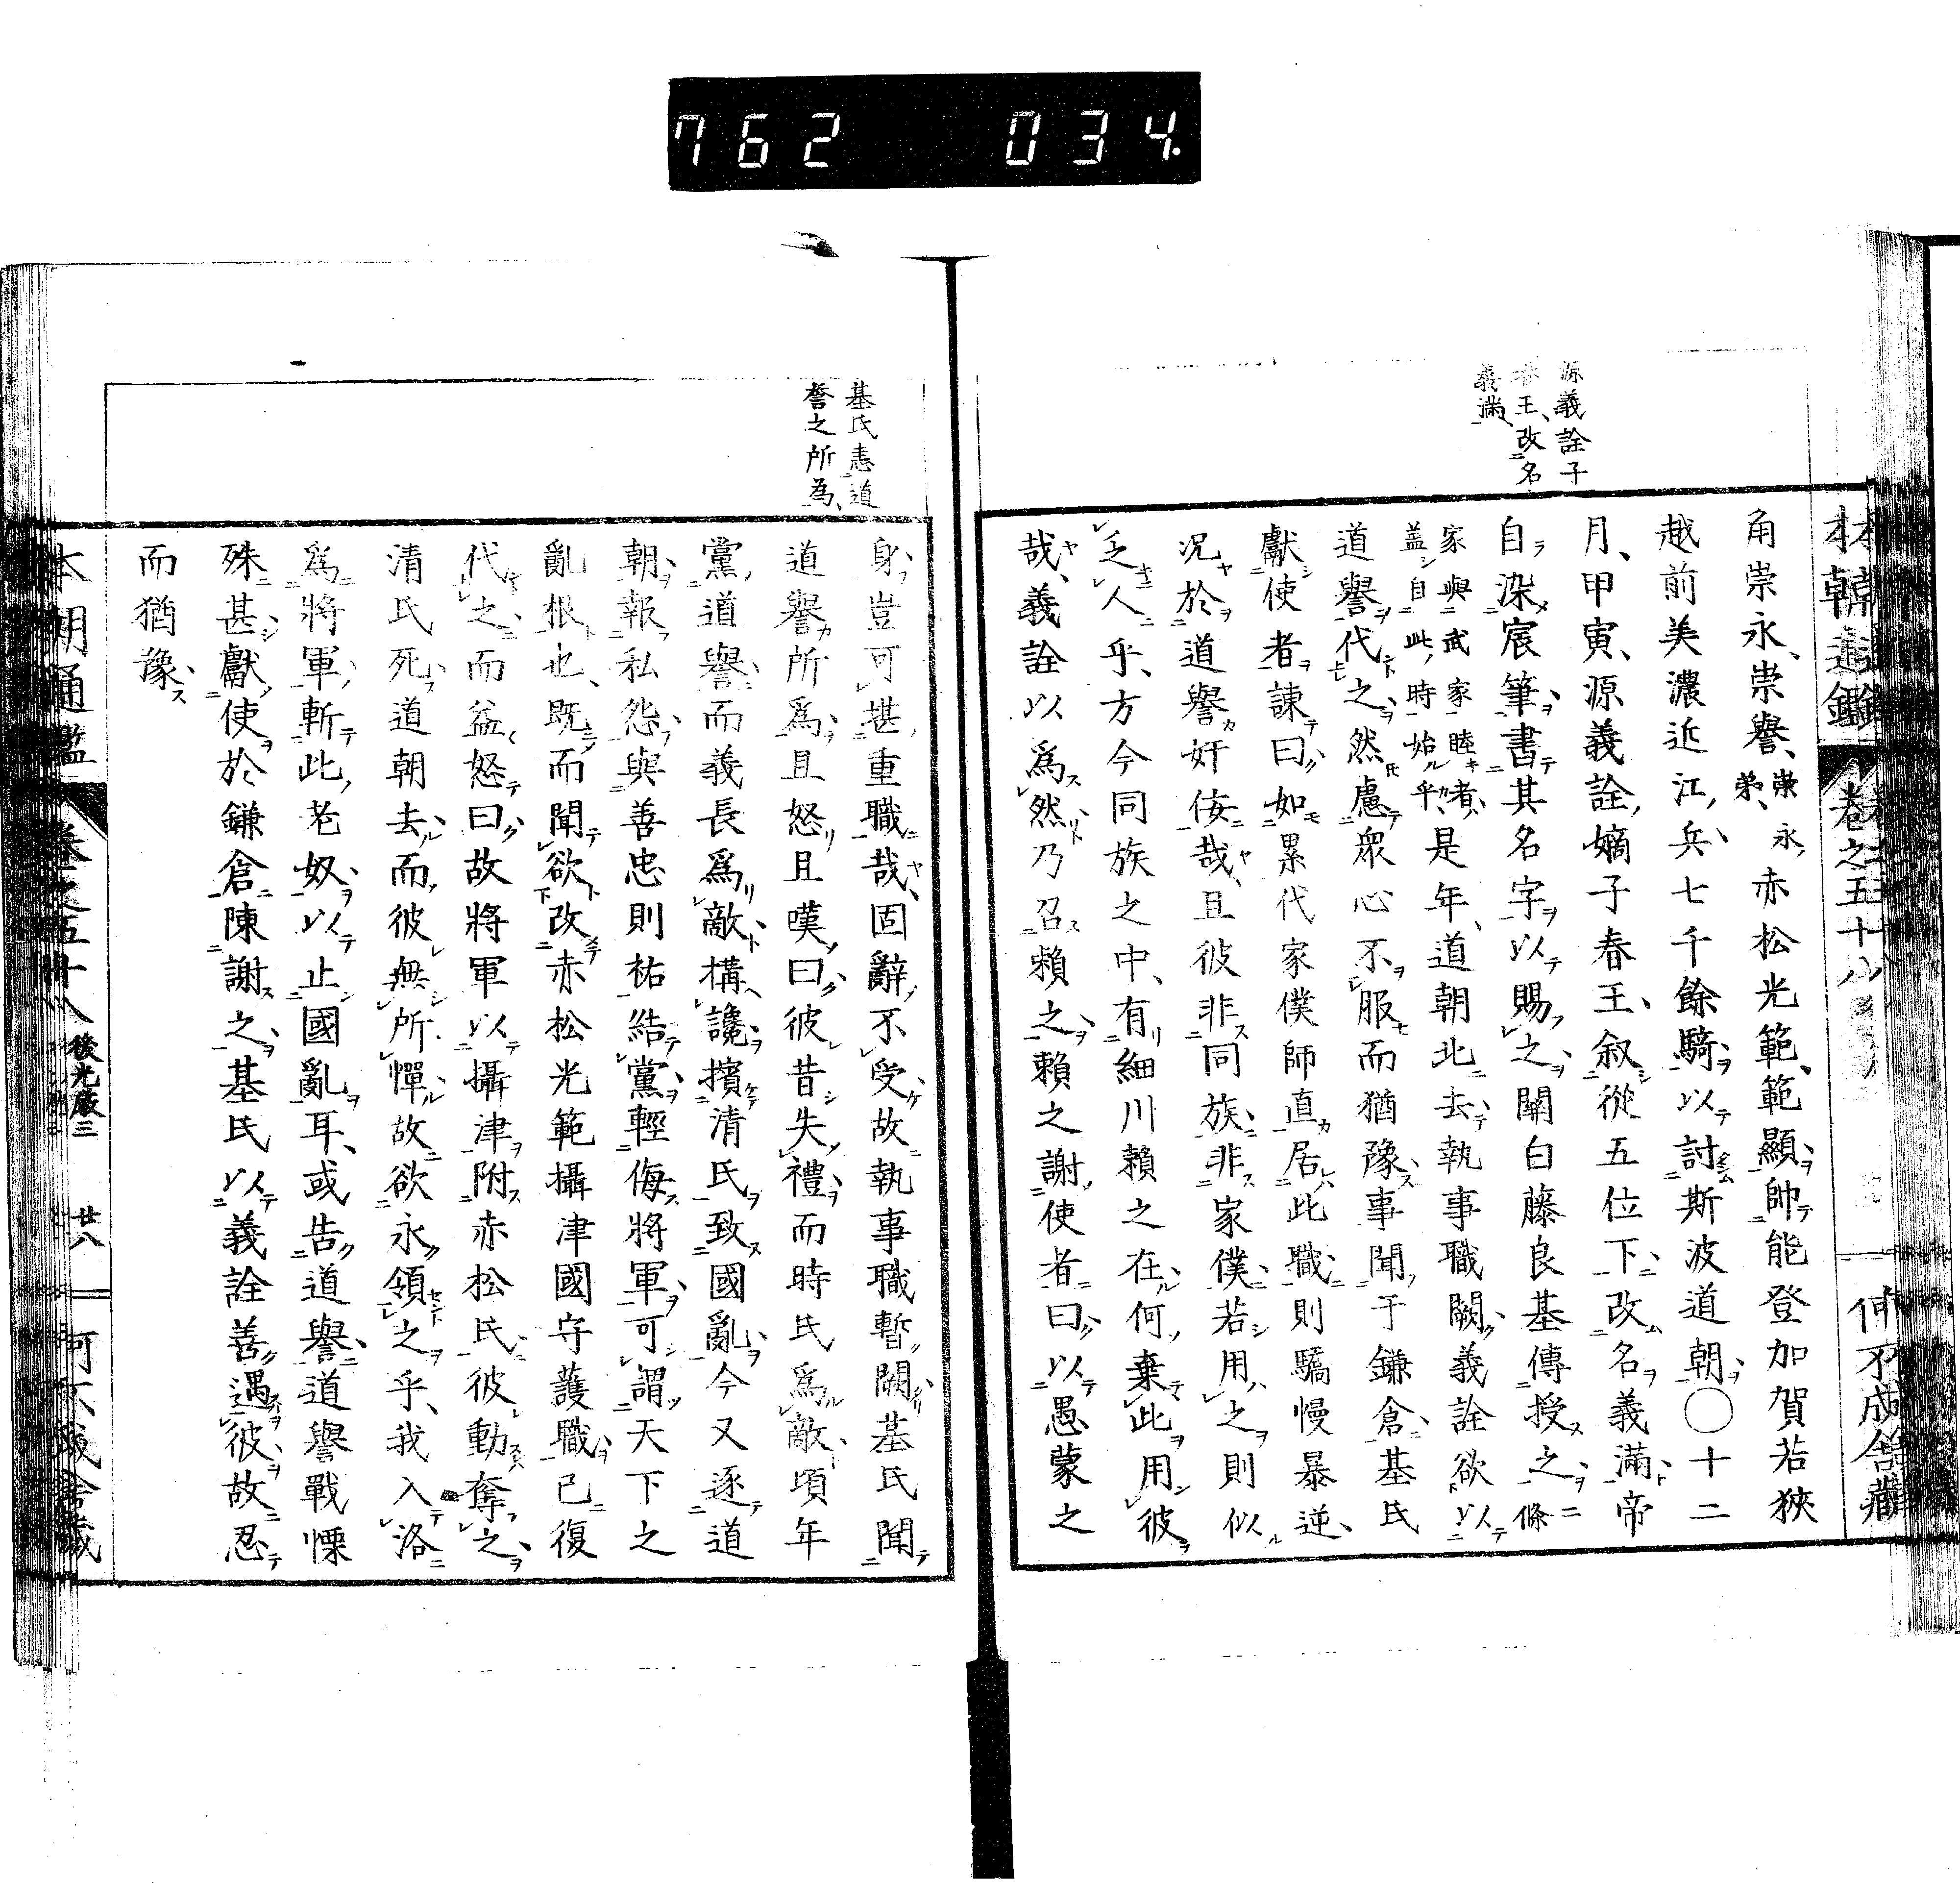 762 034
本朝通鑑 卷之五十八 何不成舍藏
源義詮子
春王改名
義滿
角崇永、崇譽、崇永弟、赤松光範、範顯、帥能登加賀若狹
越前美濃近江兵七千餘騎以討斯波道朝○十二
月、甲寅、源義詮嫡子春王、叙從五位下改名義滿帝
自染宸筆書其名字以賜之關白藤良基傳授之二條
家與武家睦者
蓋自此時始乎、是年、道朝北去執事職闕義詮欲以
道譽代之然慮衆心不服而猶豫事聞于鎌倉基氏
獻使者諫曰如累代家僕師直居此職則驕慢暴逆、
况於道譽奸侫哉、且彼非同族非家僕若用之則似
乏人乎、方今同族之中、有細川賴之在何棄此用彼
哉、義詮以爲然乃召賴之賴之謝使者曰以愚蒙之
基氏恚道
譽之所為
身豈可堪重職哉、固辭不受故執事職暫闕基氏聞
道譽所爲且怒且嘆曰彼昔失禮而時氏爲敵頃年
黨道譽而義長爲敵構讒擯清氏致國亂今又逐道
朝報私怨與善忠則祐結黨輕侮將軍可謂天下之
亂根也、既而聞欲改赤松光範攝津國守護職已復
代之而益怒曰故將軍以攝津附赤松氏彼動奪之
清氏死道朝去而彼無所憚故欲永領之乎、我入洛
爲將軍斬此老奴以止國亂耳、或告道譽道譽戰慄
殊甚獻使於鎌倉陳謝之基氏以義詮善遇彼故忍
而猶豫
本朝通鑑 卷之五十八 後光嚴三 廿八 何不成舍藏